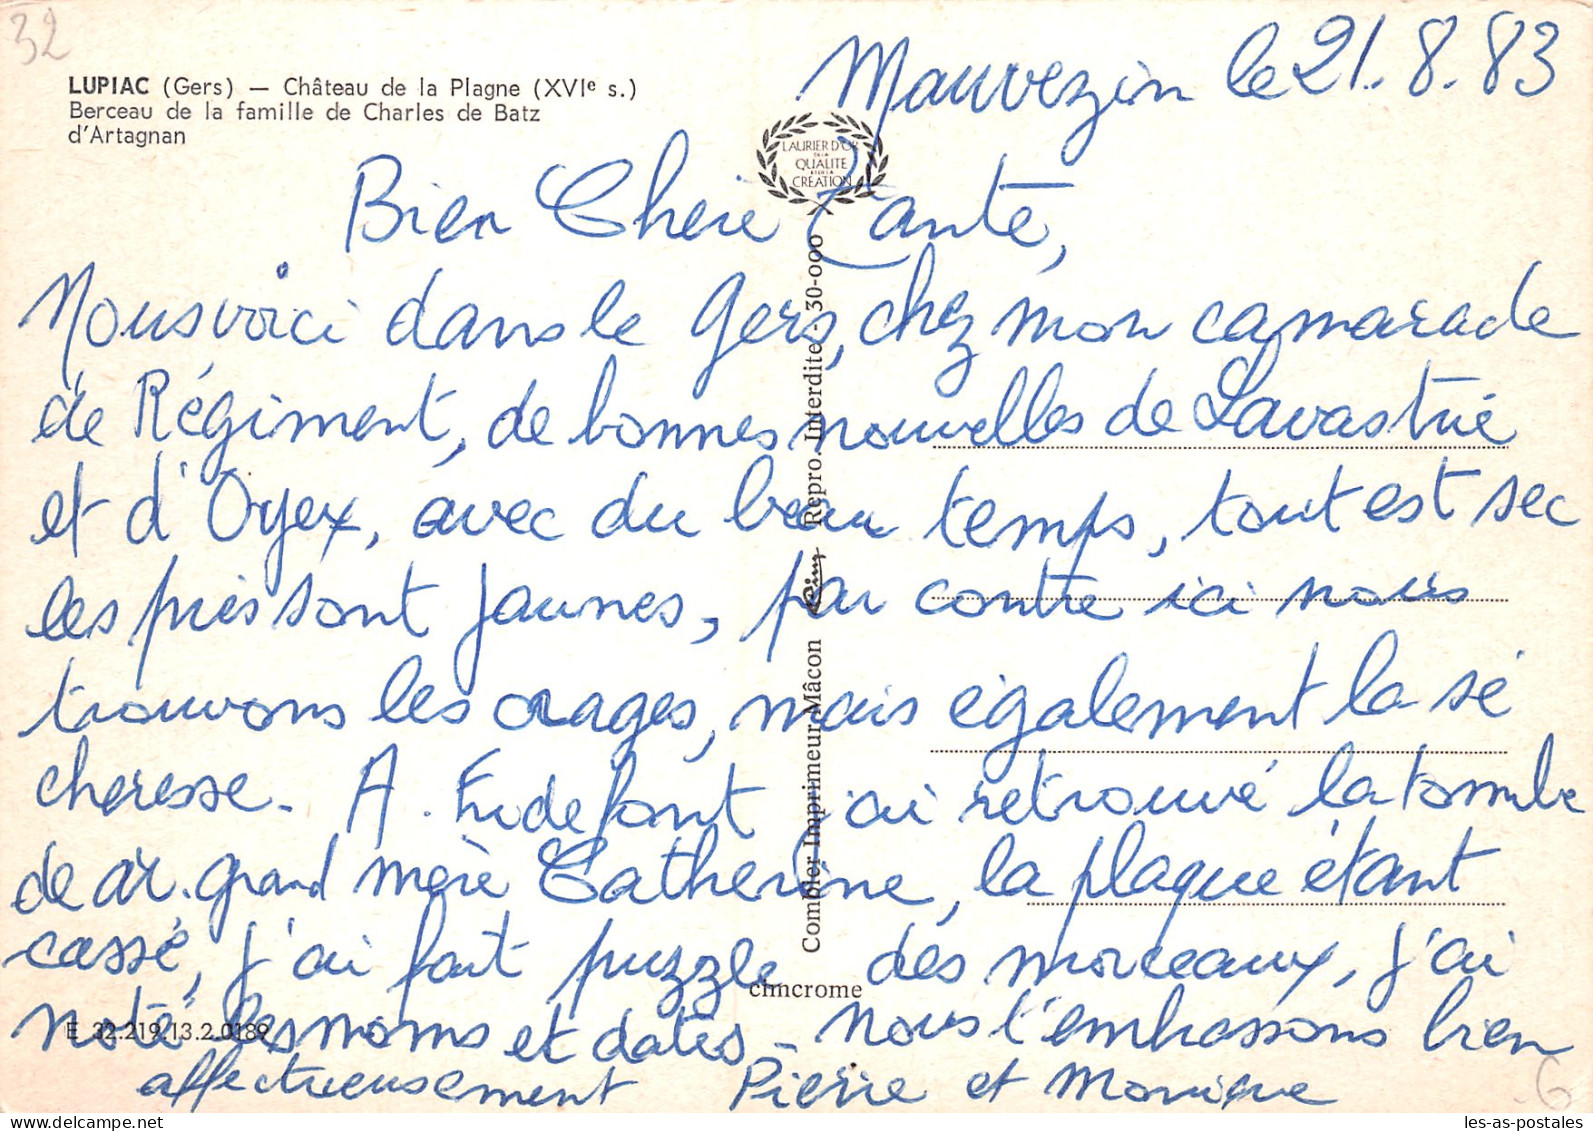 32
LUPIAC (Gers) — Château de la Plagne (XVIe s.)
Berceau de la famille de Charles de Batz
d'Artagnan
LAURIER D'OR
DE LA
QUALITE
ET DE LA
CREATION
Combier Imprimeur Mâcon Cim Repro. Interdite - 30-000
cimcrome
E 32.219.13.2.0189
Mauvezin le 21.8.83
Bien Chere Tante,
Nous voici dans le Gers, chez mon camarade
de Régiment, de bonnes nouvelles de
et d'Oyex, avec du beau temps, tout est sec
les près sont jaunes, par contre ici nous
trouvons les orages, mais également la sé
cheresse. A. j'ai retrouvé la tombe
de ar. grand mère Catherine, la plaque étant
cassé, j'ai fait puzzle des morceaux, j'ai
noté les noms et dates - nous t'embrassons bien
affectueusement Pierre et Monique
6
les-as-postales